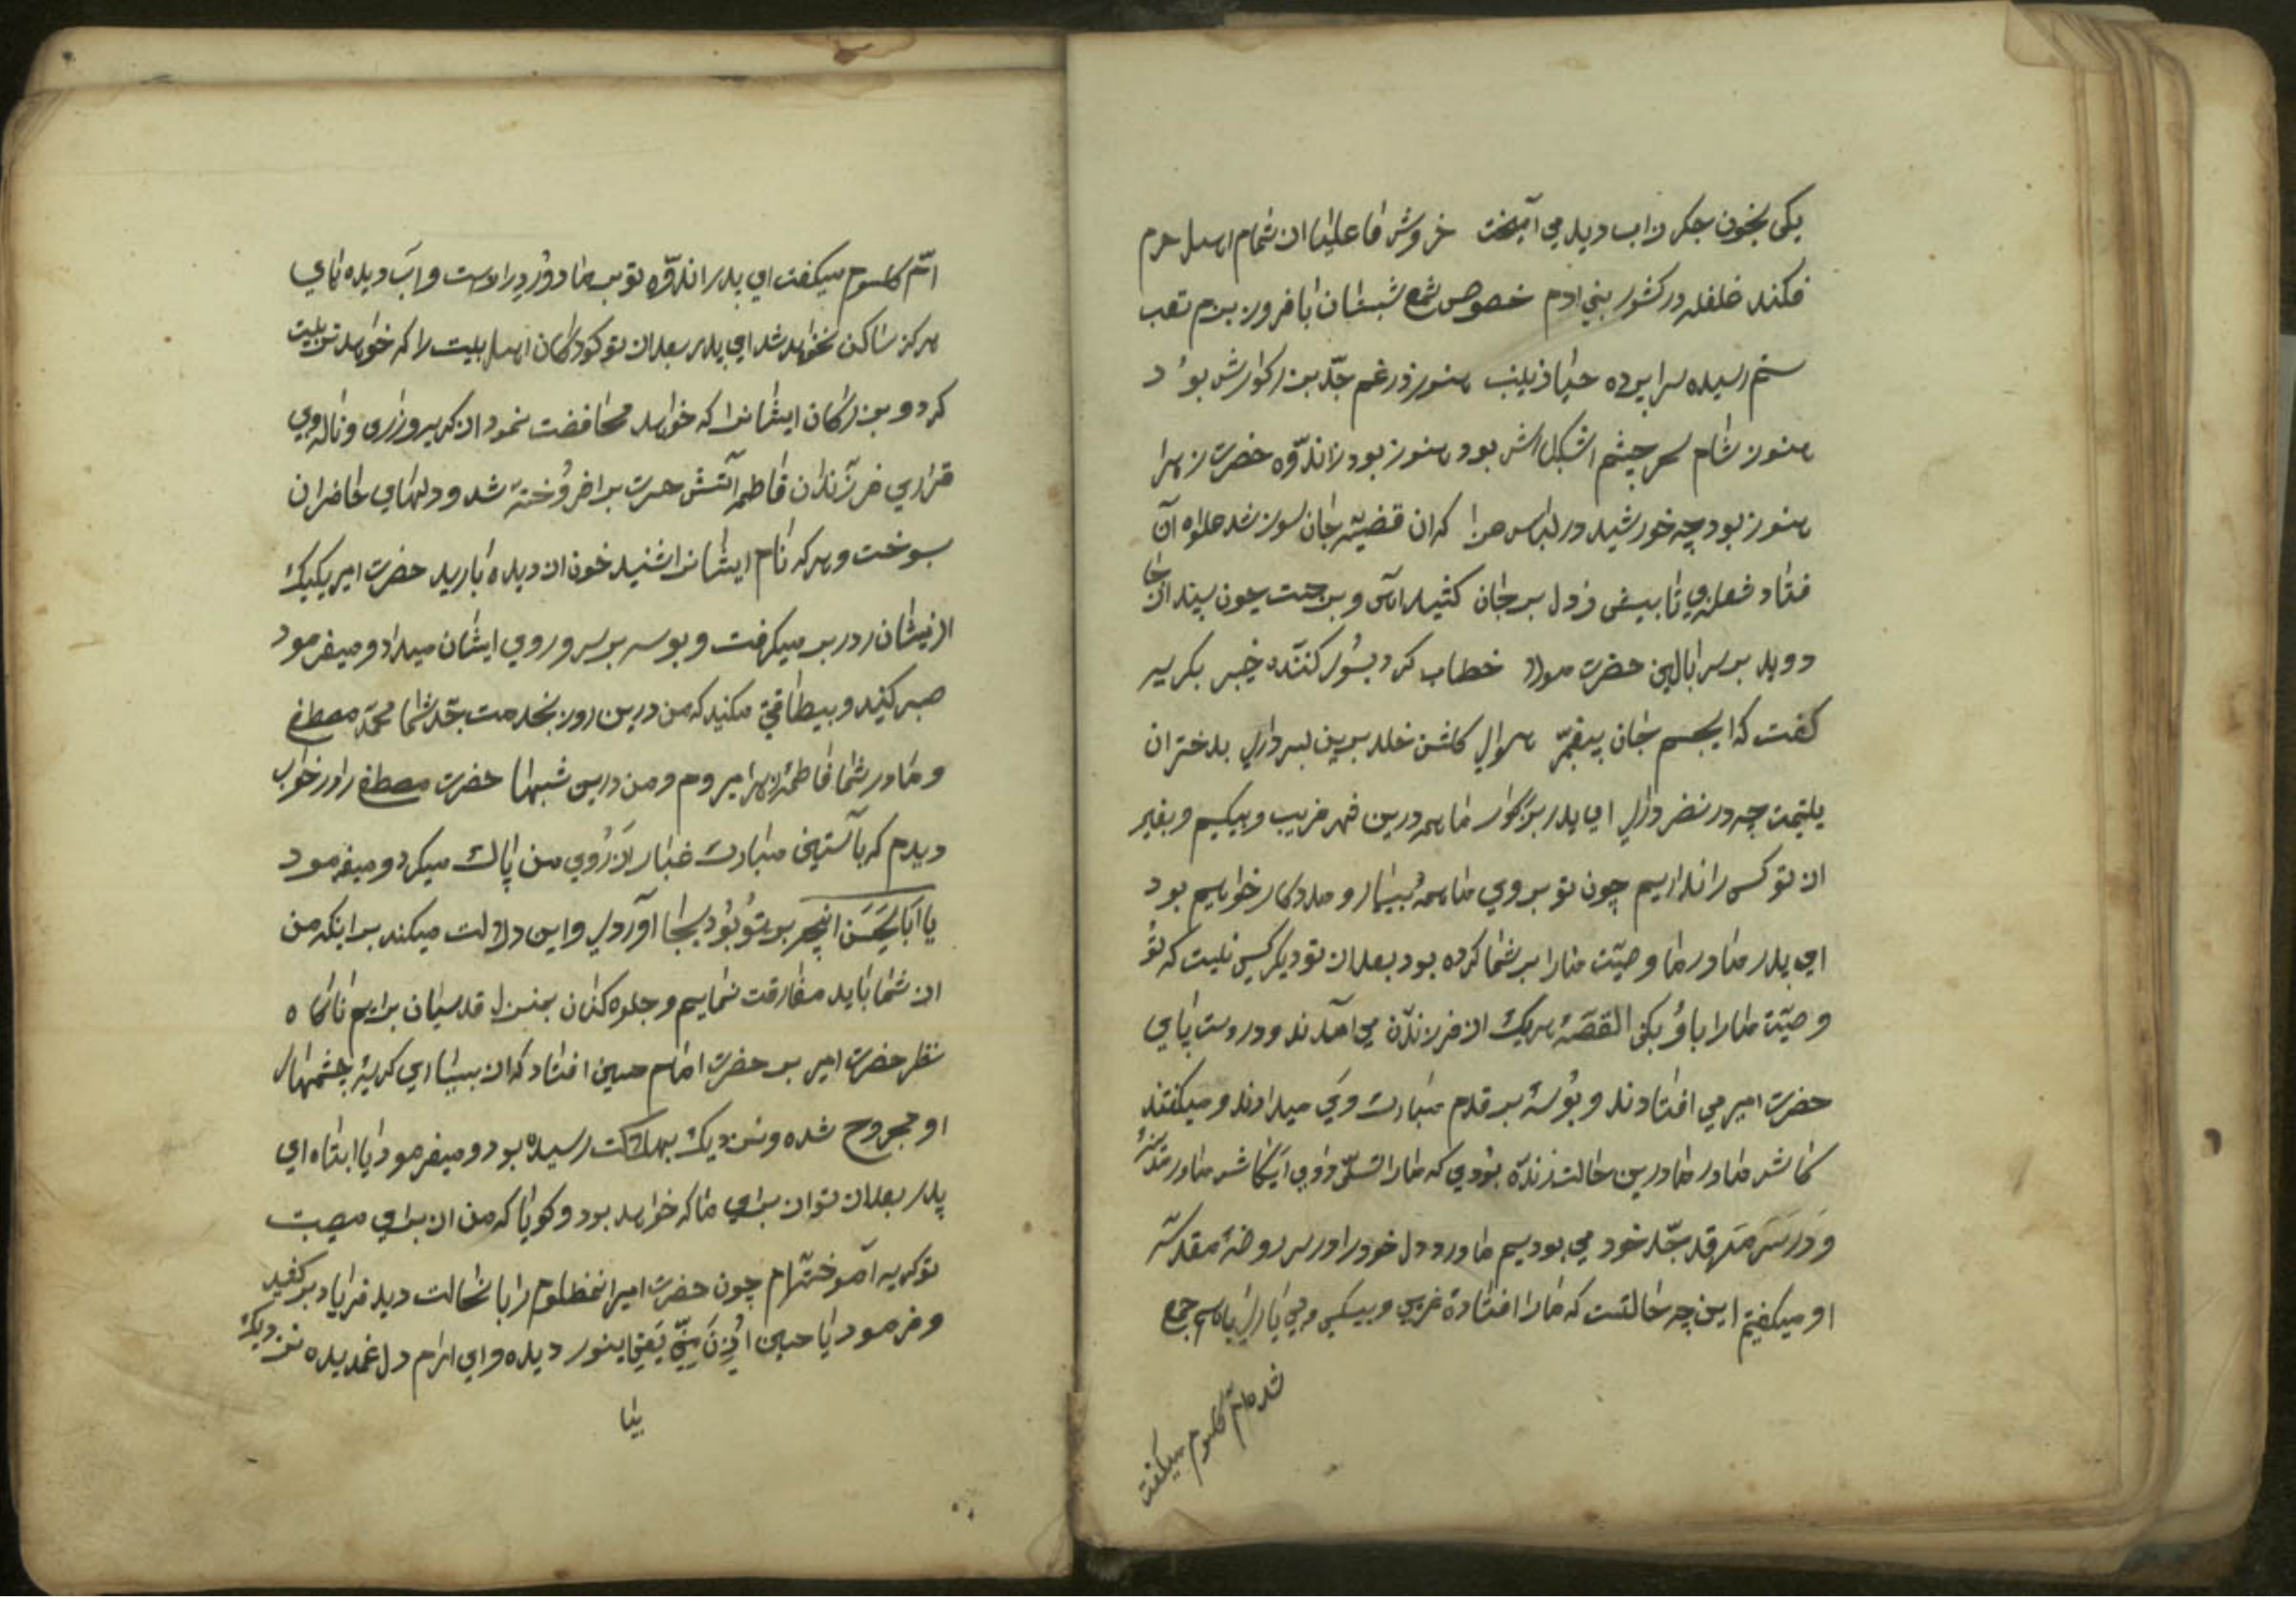 یکی بخون جکر زاب دیده می آمیخت خروش واعلیا ان تمام اهل حرم
فکند غلغله در کشور بنی ادم خصوص شمع شبستان بافروز بزم تعب
ستم رسیده سراپرده حیا زینب هنوز در غم جد بزرکوارش بود
هنوز شام سحر چشم اشکبارش بود هنوز بود زاندوه حضرت زهرا
هنوز بود چه خورشید در لباس عزا که ان قضیه جان سوز شد علاوه آن
فتاد شعله ز دل بر جان کشید اهی و برجست چون سپند از جا
دوید بر سر بالین حضرت مولا خطاب کرد بسوی کننده خیبر بکریه
کفت که ای جسم جان پیغمبر هوای کلشن خلد برین بسر داری بدختران
یتیمت چه در نضر داری ای پدر بزرکوار ما همه درین شهر غریب و بیکسیم و بغیر
از تو کسی را نداریم چون تو بروی ما همه بییار و مددکار خواهیم بود
ای پدر مادر ما وصیت ما را بر شما کرده بود بعد از تو دیکر کسی نیست که تو
وصیت ما را باو بکنی القصه هریک از فرزندان می آمدند و در دست پای
حضرت امیر می افتادند و بوسه بر قدم مبارک وی میدادند و میکفتند
کاش مادر ما درین حالت زنده بودی که ما را تسلی دادی ایکاش ما در مدینه
و در سر مرقد جد خود می بودیم ما درد دل خود را در سر روضه مقدسه
او میکفتیم این چه حالتست که ما را افتاده غریبی و بیکسی و بی یاری با هم جمع
شده ام کلسوم میکفت
ام کلسوم میکفت ای پدر اندوه تو بر ما دور دراست و آب دیده های
هرکز ساکن نخواهد شد ای پدر بعد از تو کودکان اهل بیت را که خواهد تربیت
کرد و بزرکان ایشانرا که خواهد محافضت نمود از کریه و زاری و ناله و بی
قراری فرزندان فاطمه آتش حسرت برافروخته شد و دلهای حاضران
بسوخت و هرکه نام ایشانرا شنید خون از دیده بارید حضرت امیر یکیک
از ایشان در بر میکرفت و بوسه بر سر و روی ایشان میداد و میفرمود
صبر کنید و بیطاقتی مکنید که من درین روز بخدمت جد شما محمد مصطفی
و مادر شما فاطمه زهرا میروم و من درین شبها حضرت مصطفی را در خواب
دیدم که بآستین مبارک غبار از روی من پاک میکرد و میفرمود
یا ابالحسن انچه بر تو بود بجا آوردی و این دلالت میکند بر اینکه من
از شما باید مفارقت نمایم و جلوه کنان بمنزل قدسیان برایم ناکاه
نظر حضرت امیر بر حضرت امام حسین افتاد که از بسیاری کریه چشمهای
او مجروح شده و نزدیک بهلاکت رسیده بود و میفرمود یا ابتاه ای
پدر بعد از تو از برای ما که خواهد بود و کویا که من از برای مصیبت
تو کریه آموخته ام چون حضرت امیر انمظلوم را بانحالت دید فریاد برکشید
و فرمود یا حسین ادن منی یعنی اینور دیده و ای ارام دل غمدیده نزدیک
بیا